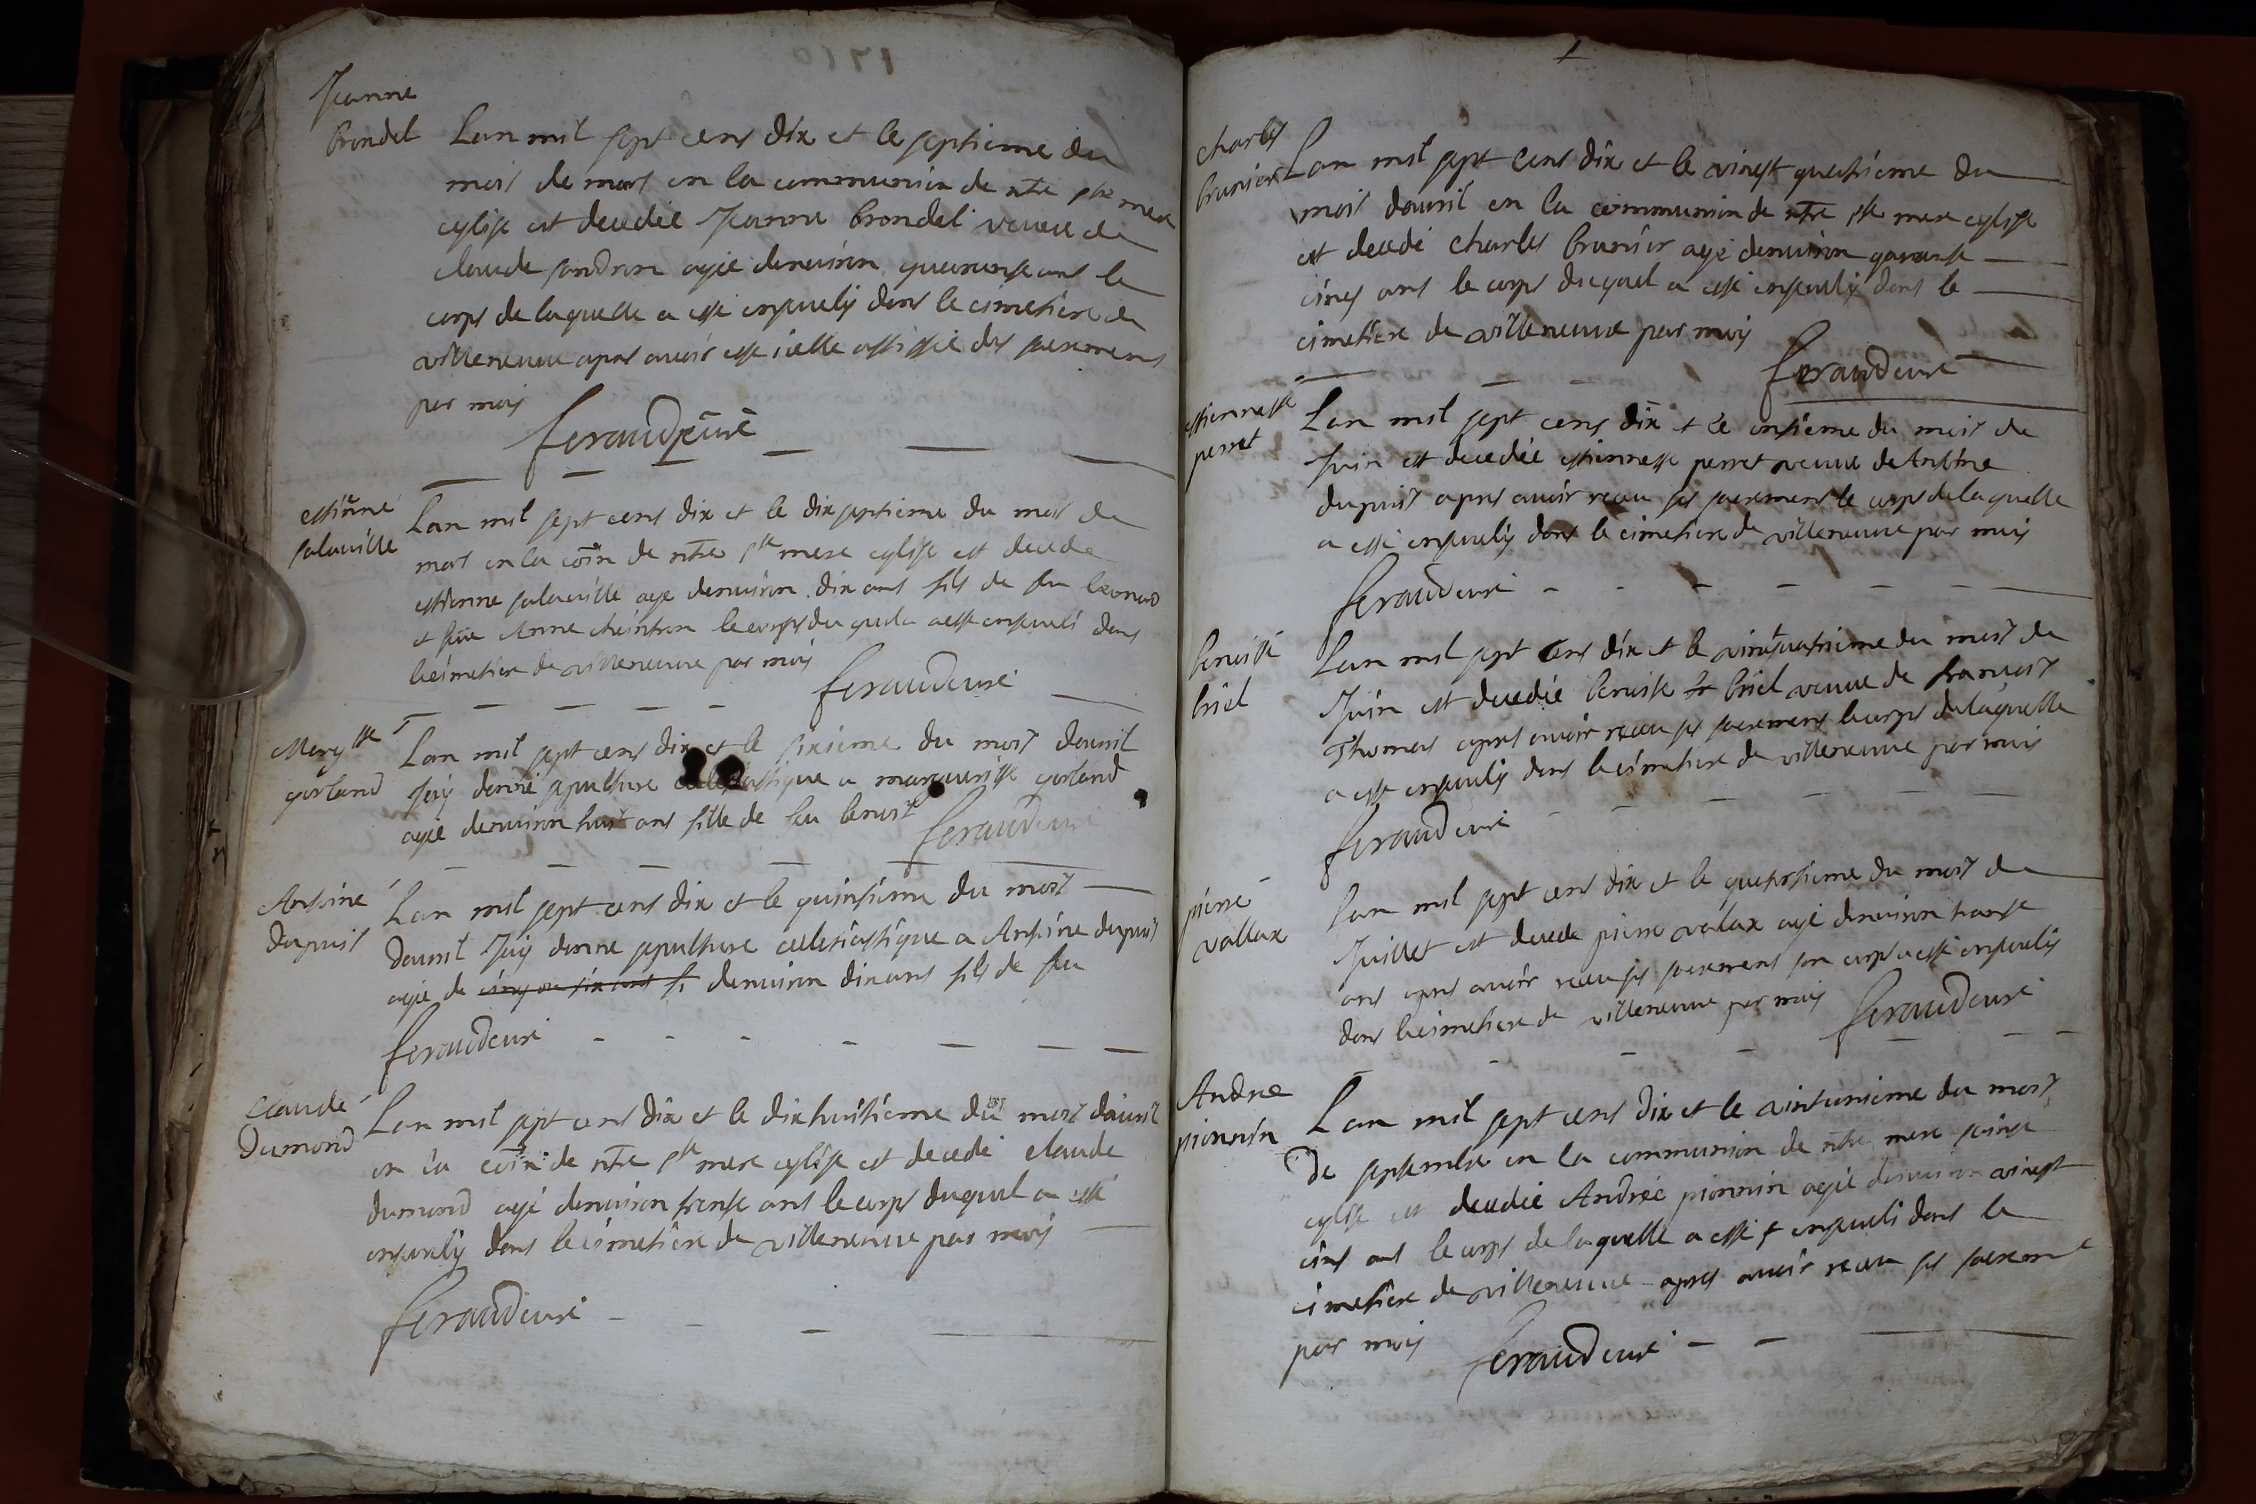 Jeanne
brondel
Lan mil sept cens dix et le septieme du
mois de mars en la communion de ntre ste mere
eglise est decedée Jeanne brondel veuve de
claude sondron agée denuiron quarante ans le
corps de laquelle a esté enseuely dans le cimetiere de
villeneuue apres auoir esté icelle assistée des sacremens
par moy
feraud curé
estienne
salauille
Lan mil sept cens dix et le dixseptieme du mois de
mars en la coïn de ntre ste mere eglise est decedé
estienne salauille agé denuiron dix ans fils de feu leonard
et feüe Anne cheintron le corps du quel a esté enseueli dans
le cimetiere de villeneuue par moy
feraud curé
Margtte
gorland
Lan mil sept cens dix et le sixieme du mois dauril
Jay donné sepulture eclesiastique a margueritte gorland
agée denuiron huit ans fille de feu benoist
feraud curé
Antoine
dupuis
Lan mil sept cens dix et le quinsieme du mois
dauril Jay donne sepulture eclesiastique a Antoine dupuis
agée de cinq ou six ans fi denuiron dix ans fils de feu
feraud curé
Claude
Dumond
Lan mil sept cens dix et le dixhuitieme du mois dauril
en la coïn de ntre ste mere eglise est decedé claude
dumond agé denuiron trente ans le corps duquel a esté
enseuely dans le cimetiere de villeneuue par moy
feraud curé
charles
brunier
Lan mil sept cens dix et le vingt quatrieme du
mois dauril en la communion de ntre ste mere eglise
est decedé charles brunier agé denuiron quarante
cinq ans le corps duquel a esté enseuely dans le
cimetiere de villeneuue par moy
feraud curé
estiennette
perret
Lan mil sept cens dix et le onsieme du mois de
Juin est decedée estiennette perret veuue de Antoine
dupuis apres auoir receu ses sacremens le corps de laquelle
a esté enseuely dans le cimetiere de villeneuue par moy
feraud curé
benoiste
briel
Lan mil sept cens dix et le vintquatrieme du mois de
Juin est decedée benoiste briel veuue de francois
Thomas apres auoir receu ses sacremens le corps de laquelle
a esté enseuely dans le cimetiere de villeneuue par moy
feraud curé
pierre
vallax
Lan mil sept cens dix et le quatorsieme du mois de
Juillet est decedé pierre valax agé denuiron trante
ans apres auoir receu ses sacremens son corps a esté enseuely
dans le cimetiere de villeneuue par moy
feraud curé
Andrée
pionnin
Lan mil sept cens dix et le vintunieme du mois
De septembre en la communion de ntre mere sainte
eglise est decedée Andrée pionnin agée denuiron vingt
cinq ans le corps de laquelle a esté enseueli dans le
cimetiere de villeneuue apres auoir receu ses sacremt
par moy
feraud curé